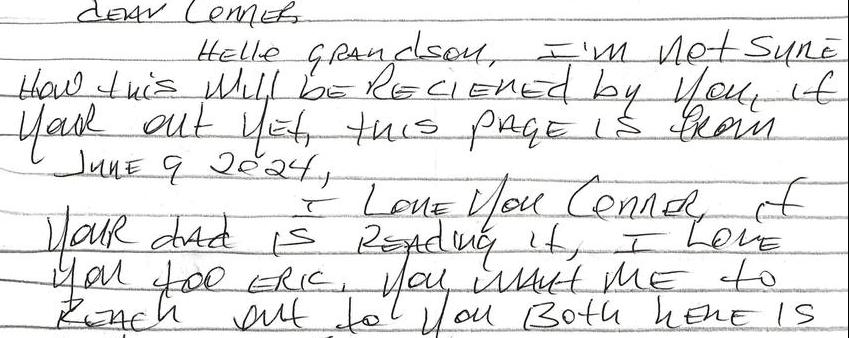 Dear Conner
Hello grandson, I'm not sure
How this will be Recieved by you, if
your out yet, this page is from
June 9 2024,
I Love you Conner, if
your dad is Reading it, I Love
you too Eric, you want me to
Reach out to you Both here is